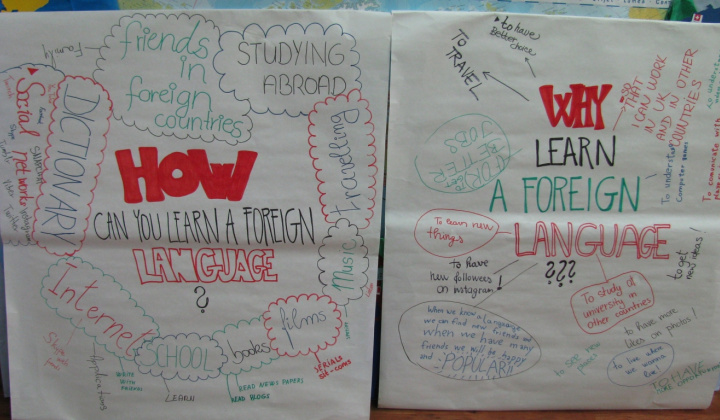 family
friends
in
foreign
countries
STUDYING
ABROAD
DICTIONARY
Social networks
travelling
HOW
CAN YOU LEARN A FOREIGN
LANGUAGE
?
Music
Internet
Applications
SCHOOL
LEARN
books
READ NEWS PAPERS
READ BLOGS
films
SERIALS
sit-coms
to have
Better choice
TO TRAVEL
WHY
LEARN
A FOREIGN
LANGUAGE
???
SO THAT
I CAN WORK
IN UK
AND IN OTHER
COUNTRIES
To understand
Computer games
BETTER
JOBS
To learn new
things
to have
new followers
on instagram!
to get
new ideas!
To study at
university in
other countries
to have more
likes on photos!
to live where
we wanna
live!
to see new
places
When we know a language
we can find new friends
when we have many
friends we will be happy
and POPULAR!!
TO HAVE